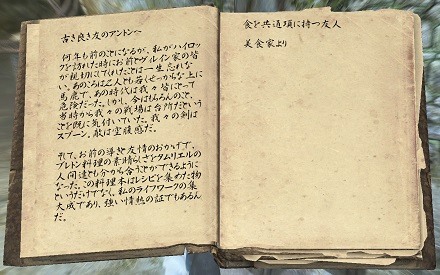 古き良き友のアントンへ
何年も前のことになるが、私がハイロッ
クを訪れた時にお前とヴルイン家の皆
が親切にしてくれたことは一生忘れな
い。あのころは2人とも若くせっかちな上に
馬鹿で、あの時代は我々皆にとって
危険だった。しかし、今はもちろんのこと、
当時から我々の戦場は台所だという
ことを既に気付いていた。我々の剣は
スプーン。敵は空腹感だ。
そして、お前の導きと友情のおかげで、
ブレトン料理の素晴らしさをタムリエルの
人間達とも分かち合うことができるように
なった。この料理本はレシピを集めた物
というだけでなく、私のライフワークの集
大成であり、強い情熱の証でもあるん
だ。
食を共通項に持つ友人
美食家より